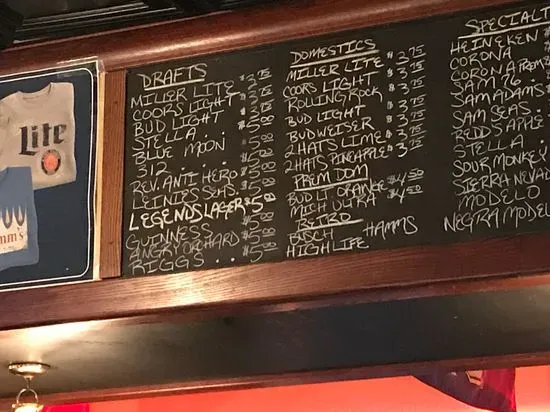 Lite
mm's
DRAFTS
MILLER LITE $3.75
COORS LIGHT $3.75
BUD LIGHT $3.75
STELLA . . . $5.00
BLUE MOON $5.00
312 . . . $5.00
REV. ANTI HERO $5.00
LEINIES SEAS. $5.00
LEGENDS LAGER $5.00
GUINNESS $5.00
ANGRY ORCHARD $5.00
RIGGS . . $5.00
DOMESTICS
MILLER LITE $3.75
COORS LIGHT $3.75
ROLLING ROCK $3.75
BUD LIGHT $3.75
BUDWEISER $3.75
2 HATS LIME $3.75
2 HATS PINEAPPLE $3.75
PREM DOM
BUD LT ORANGE $4.50
MICH ULTRA $4.50
BSCH HAMMS
HIGH LIFE
SPECIALT
HEINEKEN
CORONA
CORONA PREM
SAM 76
SAM ADAMS
SAM SEAS.
REDDS APPLE
STELLA . .
SOUR MONKEY
SIERRA NEVAD
MODELO
NEGRA MODEL